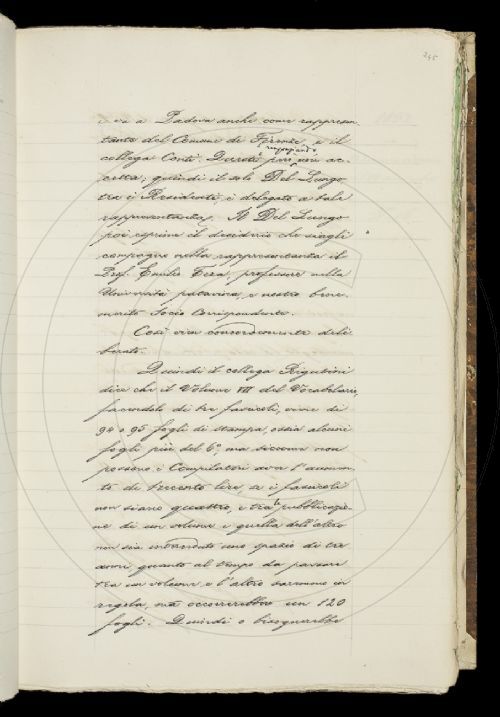 245
e va a Padova anche come rappresen-
tante del Comune di Firenze, e il
ringraziando
collega Conti. Duratè però non ac-
cetta; quindi il solo Del Lungo
tra i Residenti, è delegato a tale
rappresentanza. Il Del Lungo
poi esprime il desiderio che siagli
compagno nella rappresentanza il
Prof. Emilio Teza, professore nella
Università patavina, e nostro bene-
merito Socio Corrispondente.
Così vien concordemente deli-
berato.
Quindi il collega Rigutini
dice che il Volume VII del Vocabolario,
facendolo di tre fascicoli, viene di
94 o 95 fogli di stampa, ossia alcuni
fogli più del 6°, ma siccome non
possono i Compilatori aver l'aumen-
to di trecento lire, se i fascicoli
non siano quattro, e tra la pubblicazio-
ne di un volume e quella dell'altro
non sia intercorso uno spazio di tre
anni, quanto al tempo da passare
tra un volume e l'altro saremmo in
regola, ma occorrerebbero un 120
fogli. Quindi o bisognerebbe